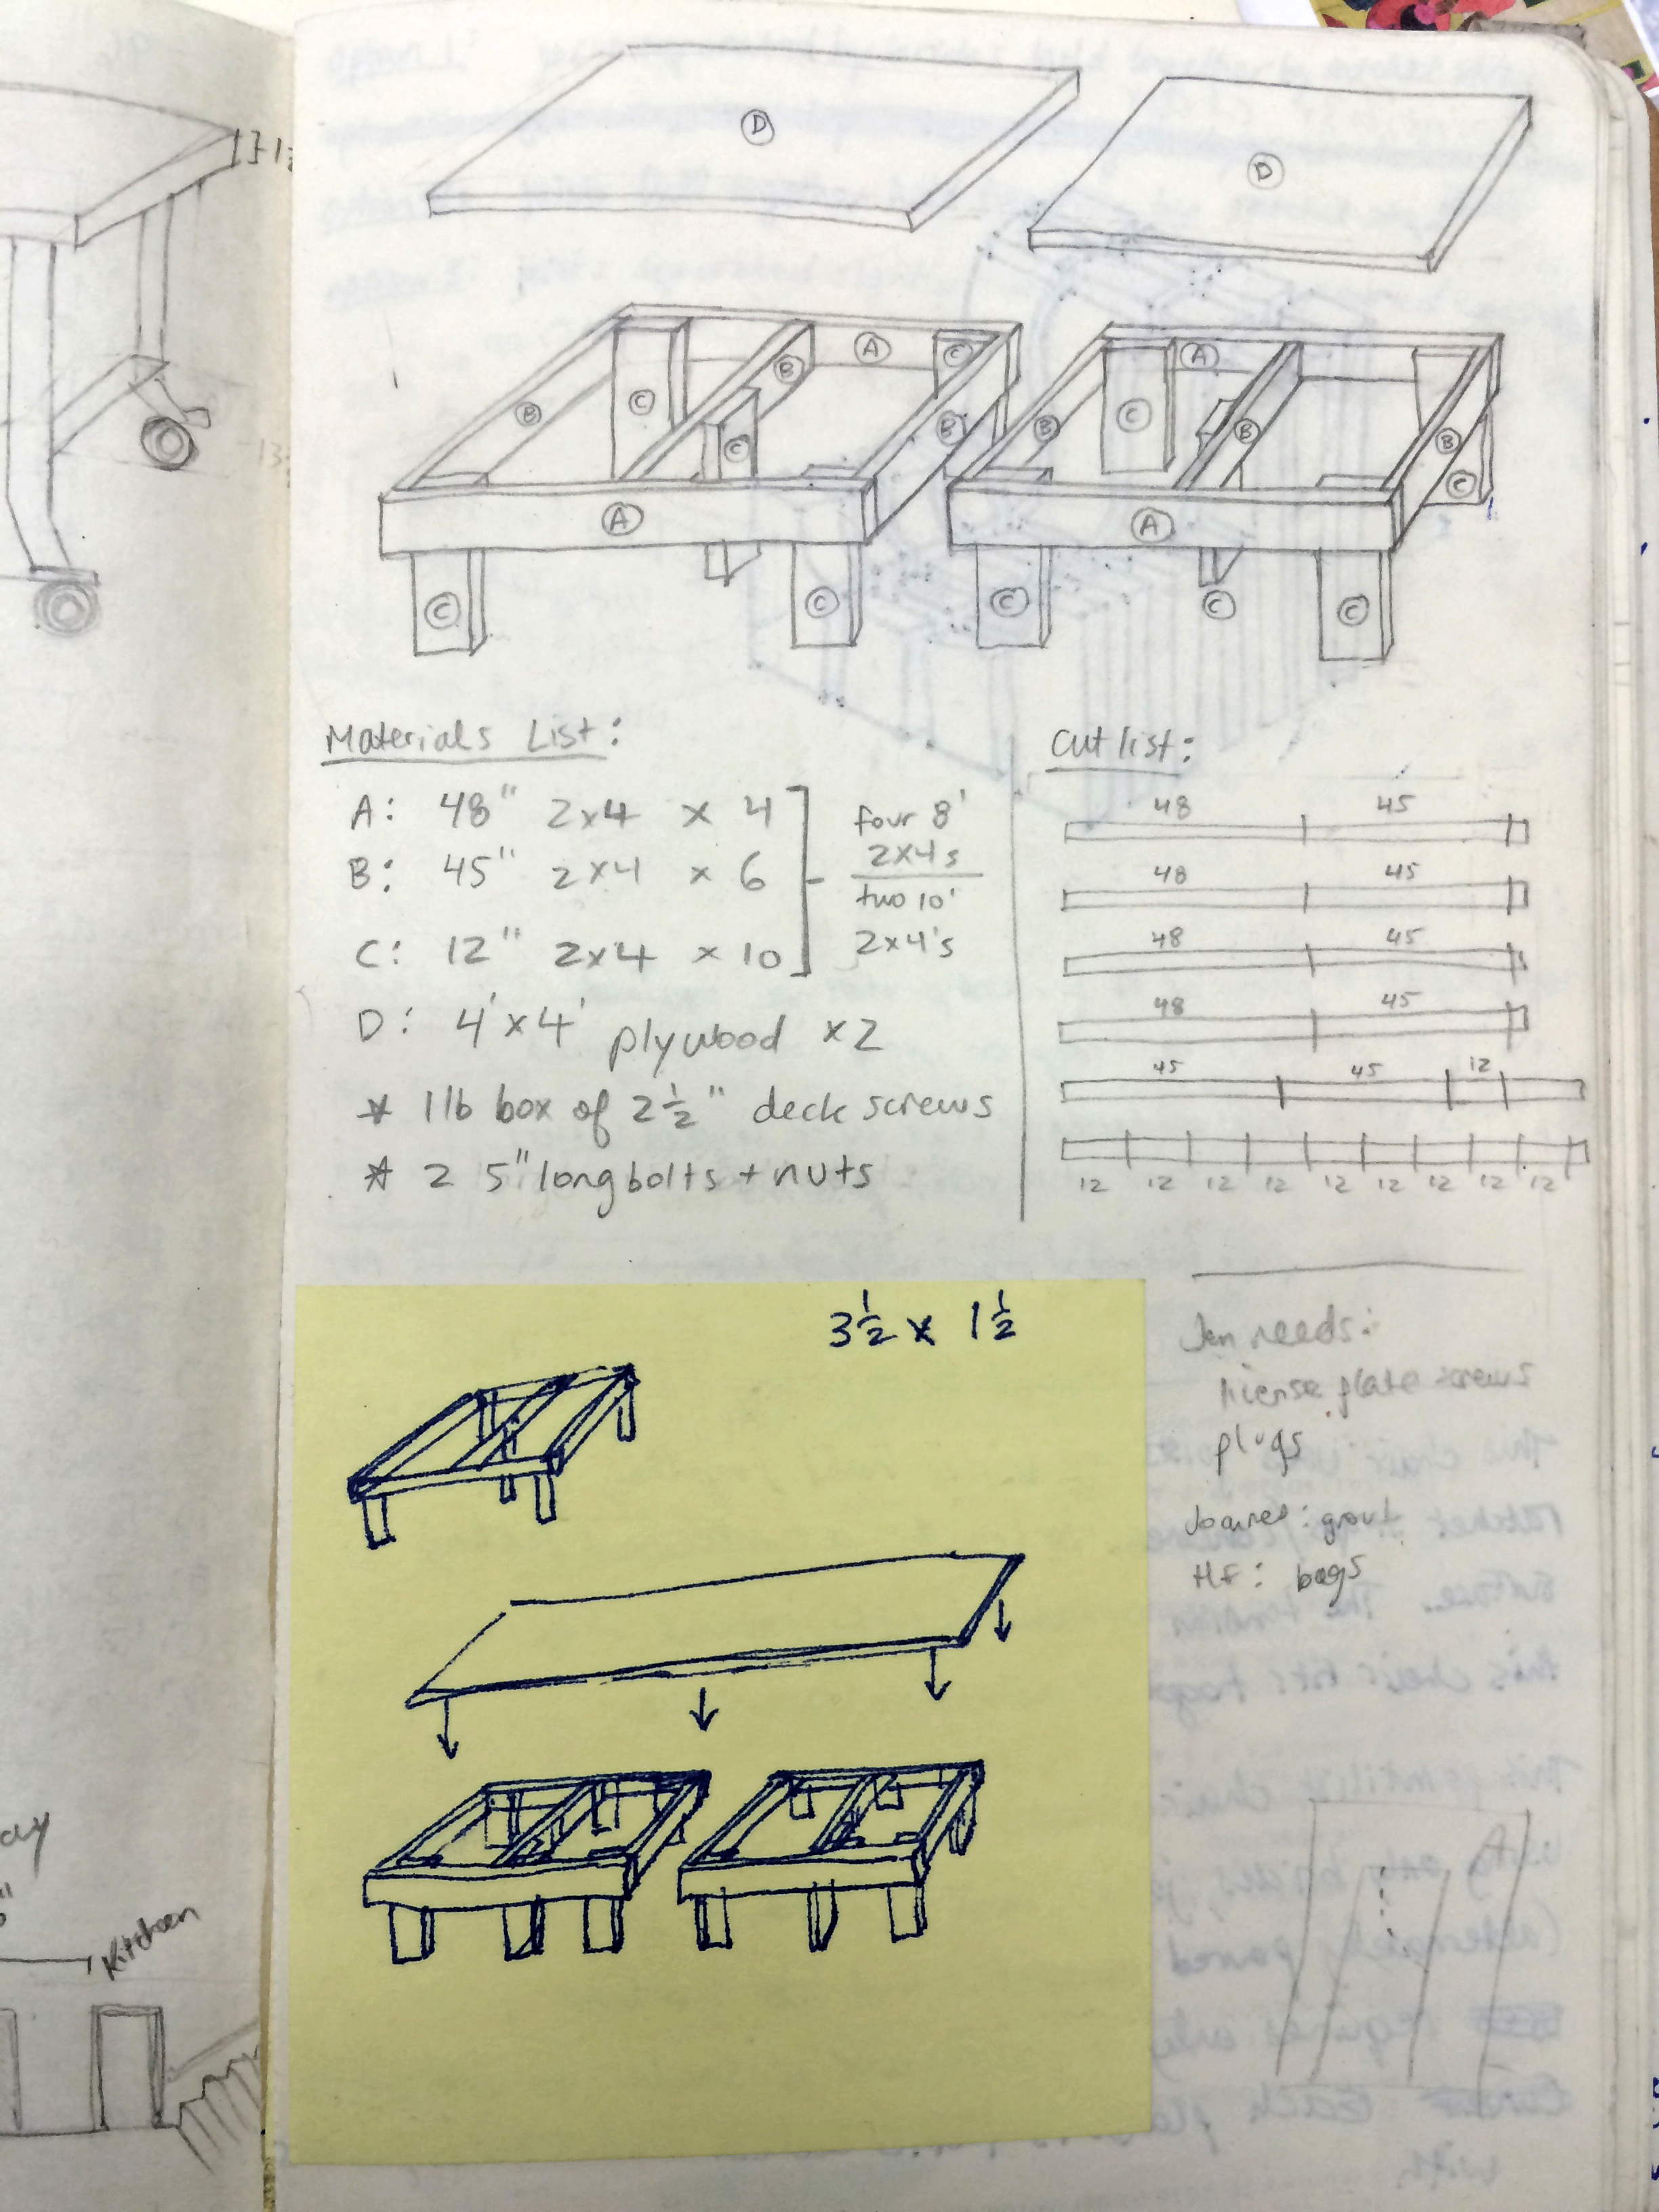 D
D
A
C
A
B
C
B
C
C
B
B
B
B
C
A
A
C
C
C
C
C
Materials List:
A: 48" 2x4 x 4
B: 45" 2x4 x 6
C: 12" 2x4 x 10
four 8'
2x4s
two 10'
2x4's
D: 4'x4' plywood x2
* 1 lb box of 2 1/2" deck screws
* 2 5" long bolts + nuts
Cut list:
48 45
48 45
48 45
48 45
45 45 12
12 12 12 12 12 12 12 12 12
3 1/2 x 1 1/2
Jen needs:
license plate screws
plugs
grout
HF: bags
Kitchen